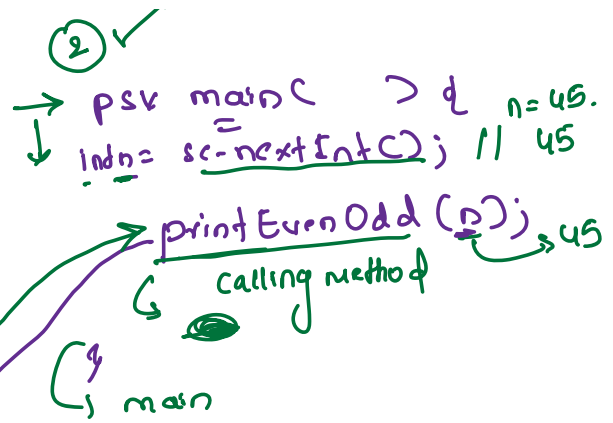 2
psv main( ) {
n = 45.
int n = sc.nextInt(); // 45
printEvenOdd (n); 45
calling method
}
main